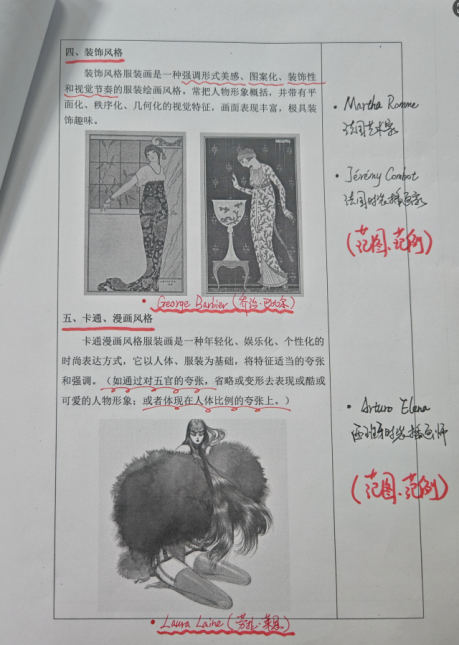 四、装饰风格
装饰风格服装画是一种强调形式美感、图案化、装饰性
和视觉节奏的服装绘画风格，常把人物形象概括，并带有平
面化、秩序化、几何化的视觉特征，画面表现丰富，极具装
饰趣味。
• George Barbier (乔治·巴比尔)
五、卡通、漫画风格
卡通漫画风格服装画是一种年轻化、娱乐化、个性化的
时尚表达方式，它以人体、服装为基础，将特征适当的夸张
和强调。（如通过对五官的夸张，省略或变形去表现或酷或
可爱的人物形象；或者体现在人体比例的夸张上。）
• Laura Laine (劳拉·莱恩)
• Martha
法国艺术家
• Jérémy Combot
法国时装插画家
(范图、范例)
• Arturo Elena
西班牙时装插画师
(范图、范例)